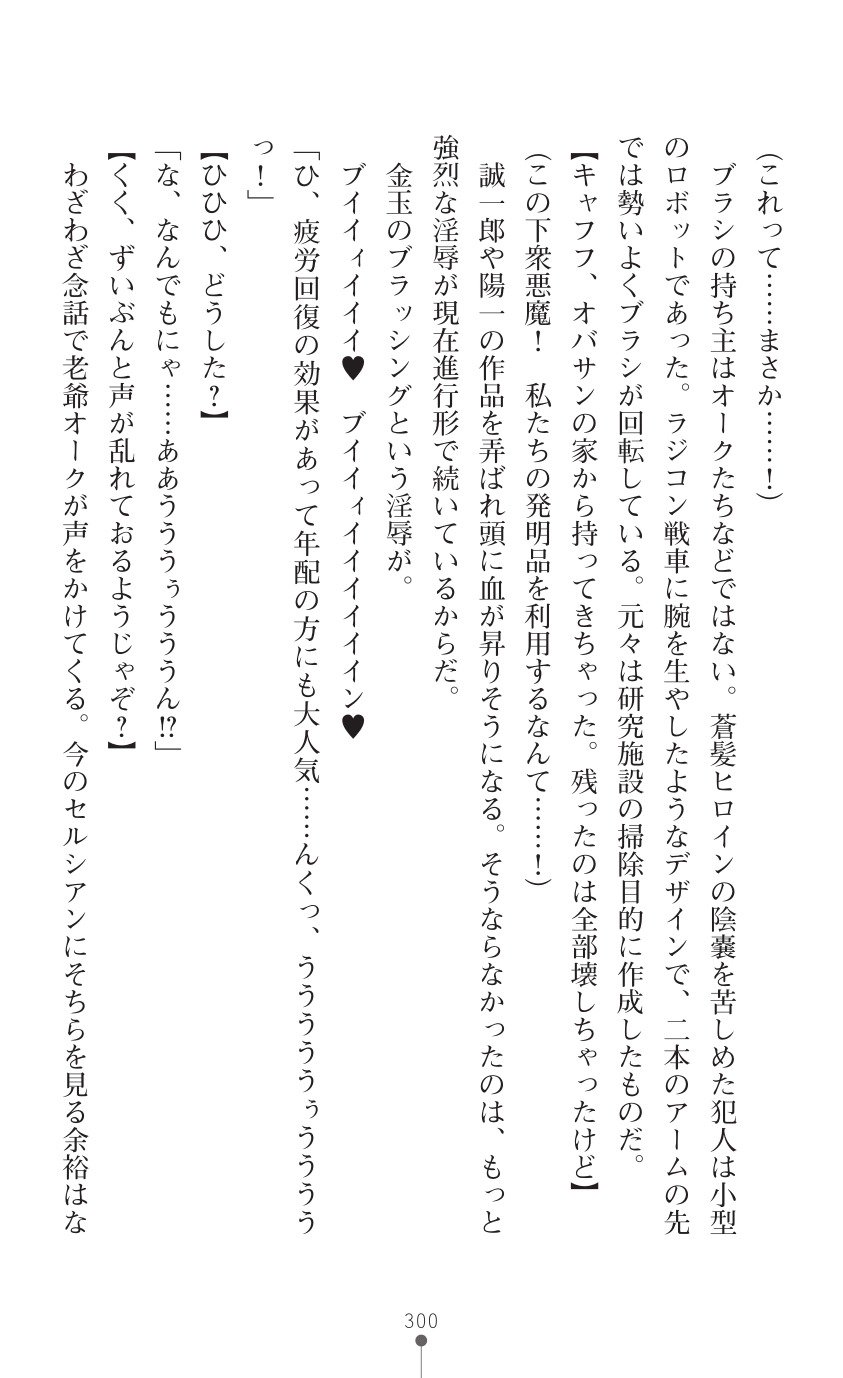 (これって……まさか……！)
　ブラシの持ち主はオークたちなどではない。蒼髪ヒロインの陰嚢を苦しめた犯人は小型
のロボットであった。ラジコン戦車に腕を生やしたようなデザインで、二本のアームの先
では勢いよくブラシが回転している。元々は研究施設の掃除目的に作成したものだ。
【キャフフ、オバサンの家から持ってきちゃった。残ったのは全部壊しちゃったけど】
(この下衆悪魔！　私たちの発明品を利用するなんて……！)
　誠一郎や陽一の作品を弄ばれ頭に血が昇りそうになる。そうならなかったのは、もっと
強烈な淫辱が現在進行形で続いているからだ。
　金玉のブラッシングという淫辱が。
　ブイイィイイイ♥　ブイイィイイイイイイン♥
「ひ、疲労回復の効果があって年配の方にも大人気……んくっ、うううううぅうううう
っ！」
【ひひひ、どうした？】
「な、なんでもにゃ……ああうううぅうううん!?」
【くく、ずいぶんと声が乱れておるようじゃぞ？】
　わざわざ念話で老爺オークが声をかけてくる。今のセルシアンにそちらを見る余裕はな
300